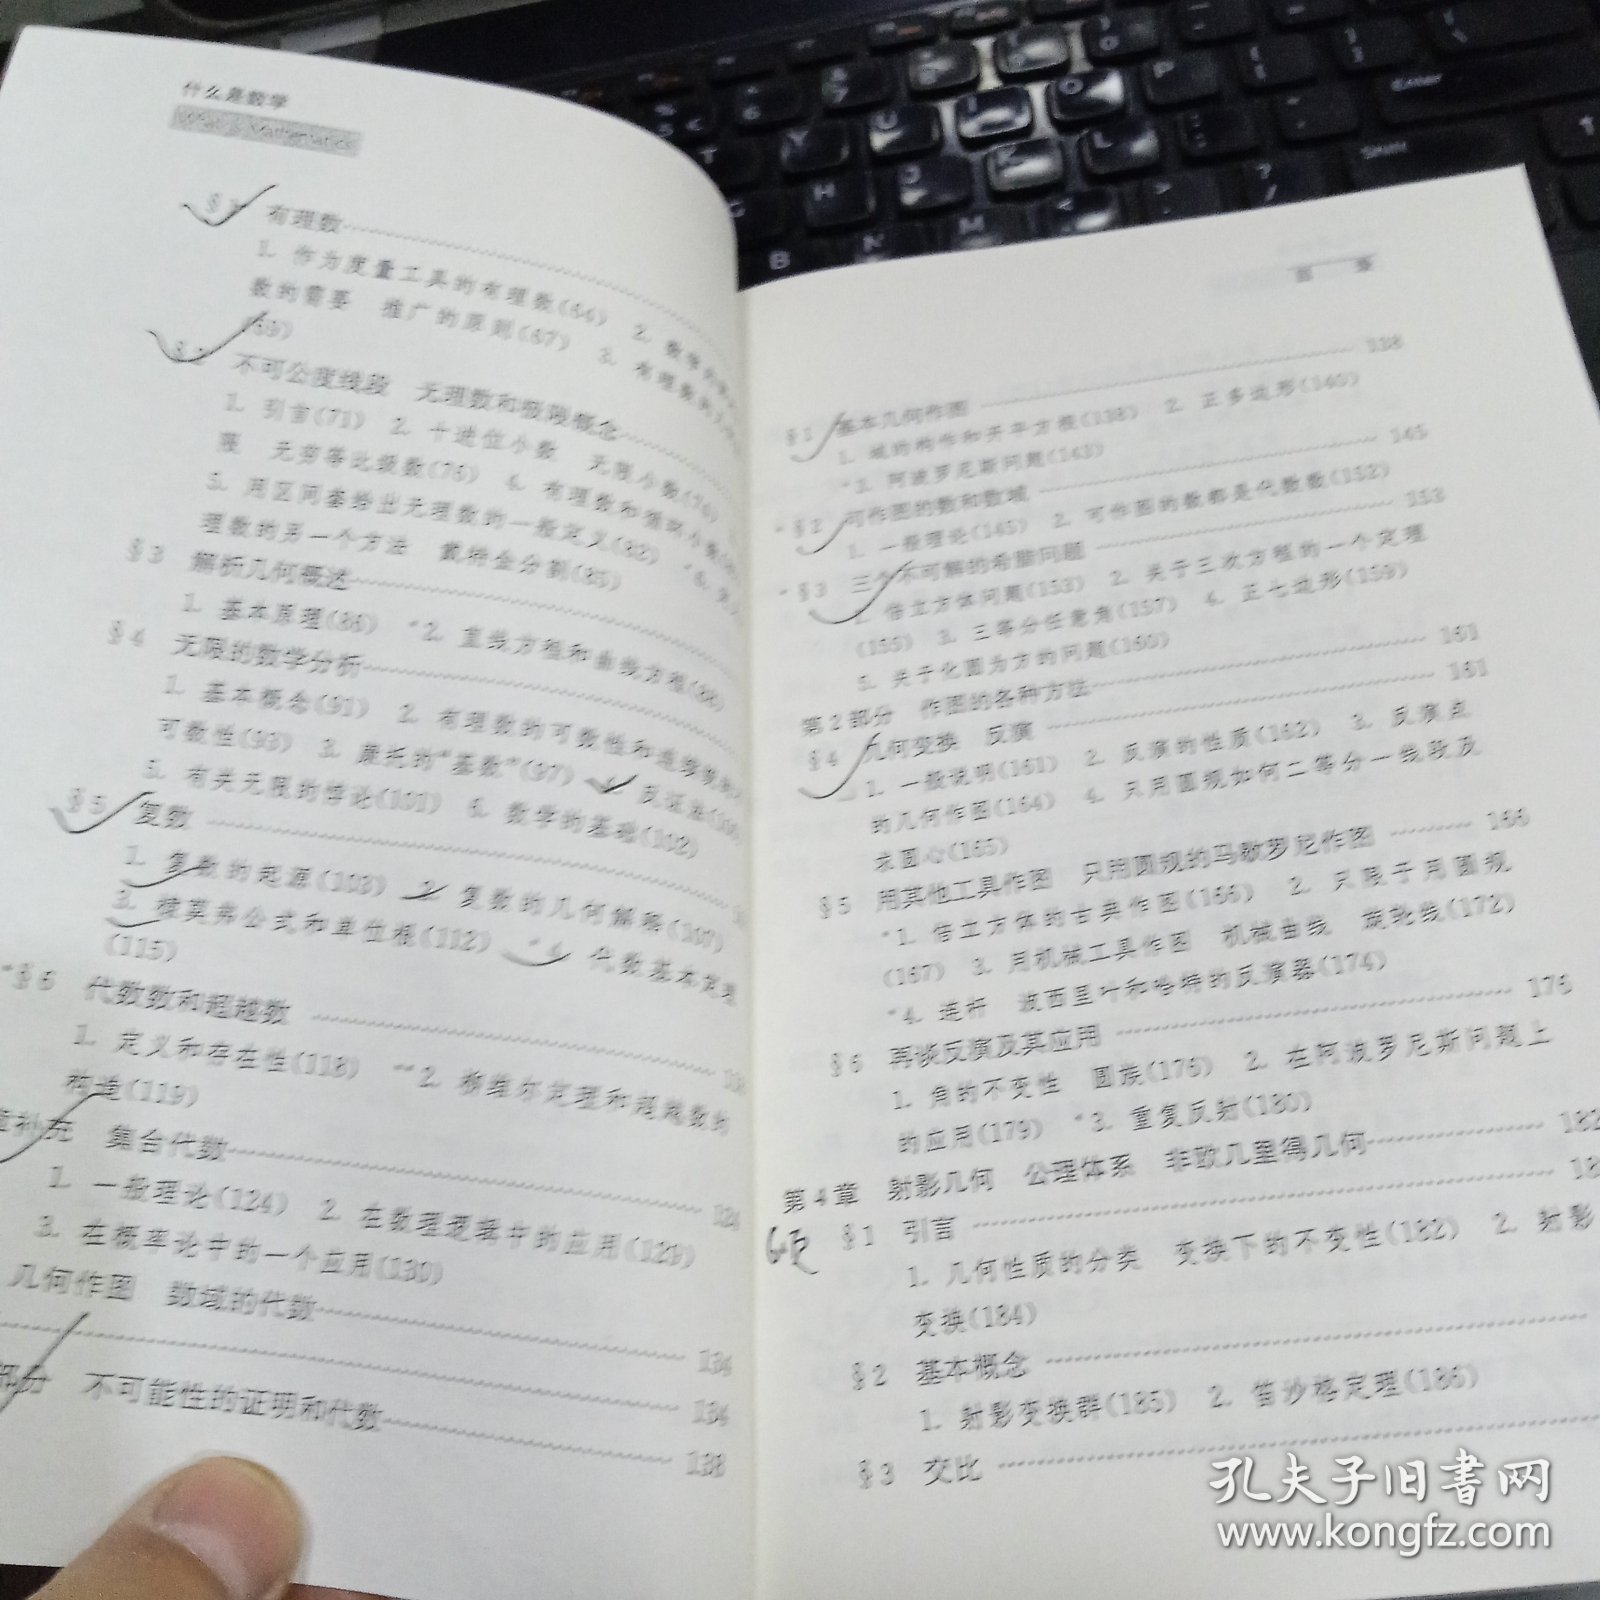 什么是数学
What is Mathematics
§1 有理数
1. 作为度量工具的有理数(64) 2. 数学
数的需要 推广的原则(67) 3. 有理数的
(69)
§2 不可公度线段 无理数和极限概念
1. 引言(71) 2. 十进位小数 无限小数(74)
限 无穷等比级数(76) 4. 有理数和循环小数
5. 用区间套给出无理数的一般定义(82) *6.
理数的另一个方法 戴特金分割(85)
§3 解析几何概述
1. 基本原理(86) *2. 直线方程和曲线方程(88)
§4 无限的数学分析
1. 基本概念(91) 2. 有理数的可数性和连续统的
可数性(93) 3. 康托的“基数”(97) 4. 反证法
5. 有关无限的悖论(101) 6. 数学的基础(102)
§5 复数
1. 复数的起源(103) 2. 复数的几何解释(107)
3. 棣莫弗公式和单位根(112) *4. 代数基本定理
(115)
*§6 代数数和超越数
1. 定义和存在性(118) **2. 刘维尔定理和超越数的
构造(119)
章补充 集合代数 124
1. 一般理论(124) 2. 在数理逻辑中的应用(129)
3. 在概率论中的一个应用(130)
几何作图 数域的代数 134
134
部分 不可能性的证明和代数 138
目 录
§1 基本几何作图 138
1. 域的构作和开平方根(138) 2. 正多边形(140)
*3. 阿波罗尼斯问题(143)
*§2 可作图的数和数域 145
1. 一般理论(145) 2. 可作图的数都是代数数(152)
*§3 三个不可解的希腊问题 153
1. 倍立方体问题(153) 2. 关于三次方程的一个定理
(155) 3. 三等分任意角(157) 4. 正七边形(159)
5. 关于化圆为方的问题(160)
第2部分 作图的各种方法 161
§4 几何变换 反演 161
1. 一般说明(161) 2. 反演的性质(162) 3. 反演点
的几何作图(164) 4. 只用圆规如何二等分一线段及
求圆心(165)
§5 用其他工具作图 只用圆规的马歇罗尼作图 166
*1. 倍立方体的古典作图(166) 2. 只限于用圆规
(167) 3. 用机械工具作图 机械曲线 旋轮线(172)
*4. 连杆 波西里叶和哈特的反演器(174)
§6 再谈反演及其应用 176
1. 角的不变性 圆族(176) 2. 在阿波罗尼斯问题上
的应用(179) *3. 重复反射(180)
第4章 射影几何 公理体系 非欧几里得几何 182
§1 引言
1. 几何性质的分类 变换下的不变性(182) 2. 射影
变换(184)
§2 基本概念
1. 射影变换群(185) 2. 笛沙格定理(186)
§3 交比
孔夫子旧书网
www.kongfz.com